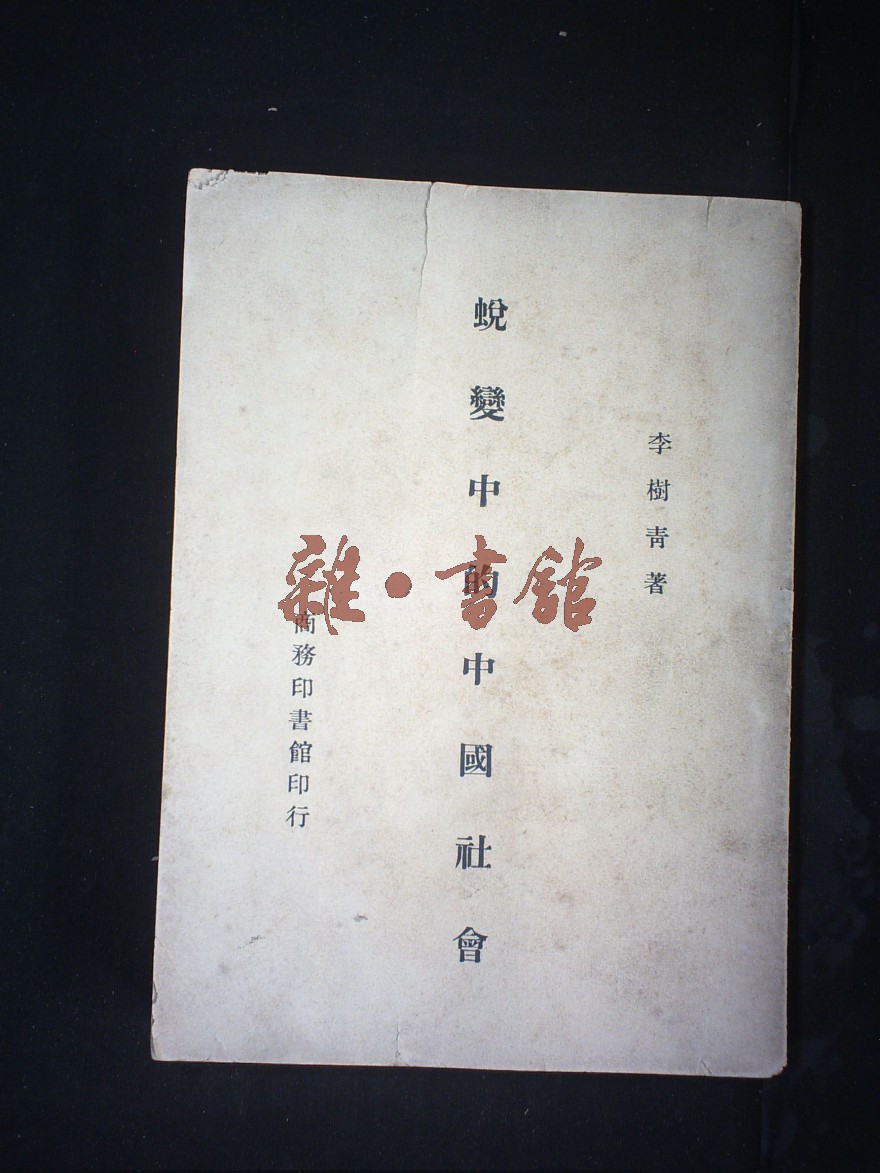 李樹青著
蛻變中的中國社會
商務印書館印行
雜·書館